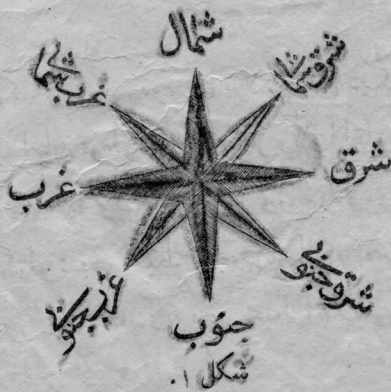 شمال
شرق شمالی
شرق
شرق جنوبی
جنوب
غرب جنوبی
غرب
غرب شمالی
شکل ۱.